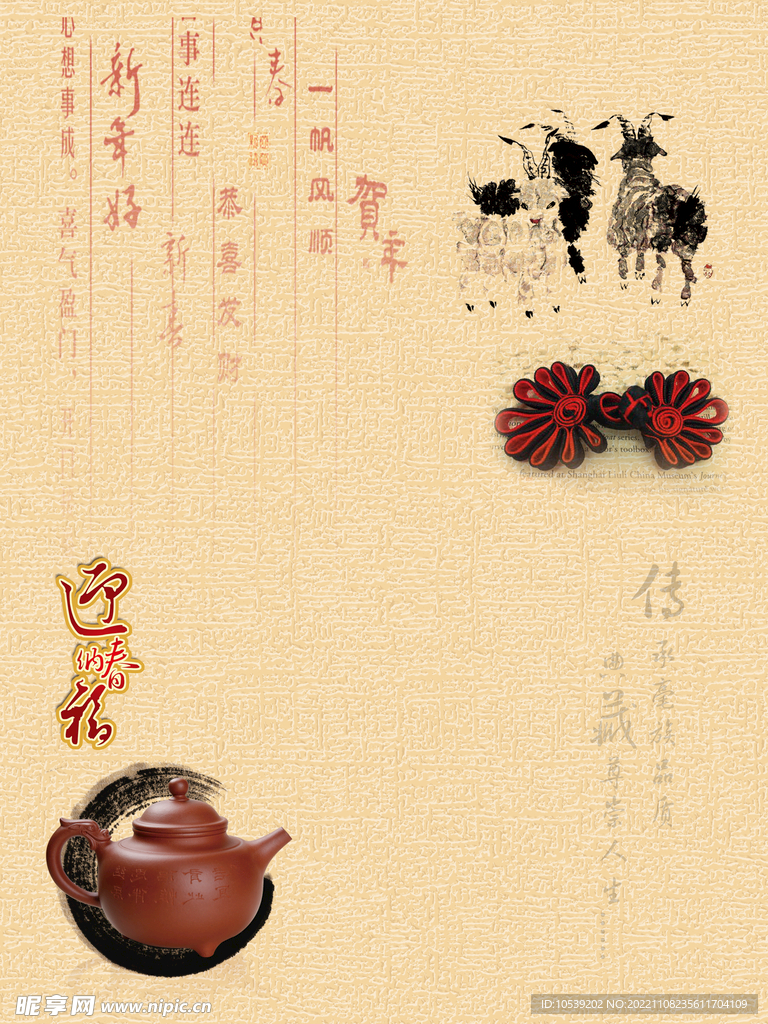 心想事成。喜气盈门，
新年好
事连连
新喜
恭喜发财
春
一帆风顺
贺年
our series.
or's toolbox
featured at Shanghai Liuli China Museum's Journey
迎春纳福
传承毫族品质
典藏尊崇人生
昵享网 www.nipic.cn
ID:10539202 NO:20221108235611704109